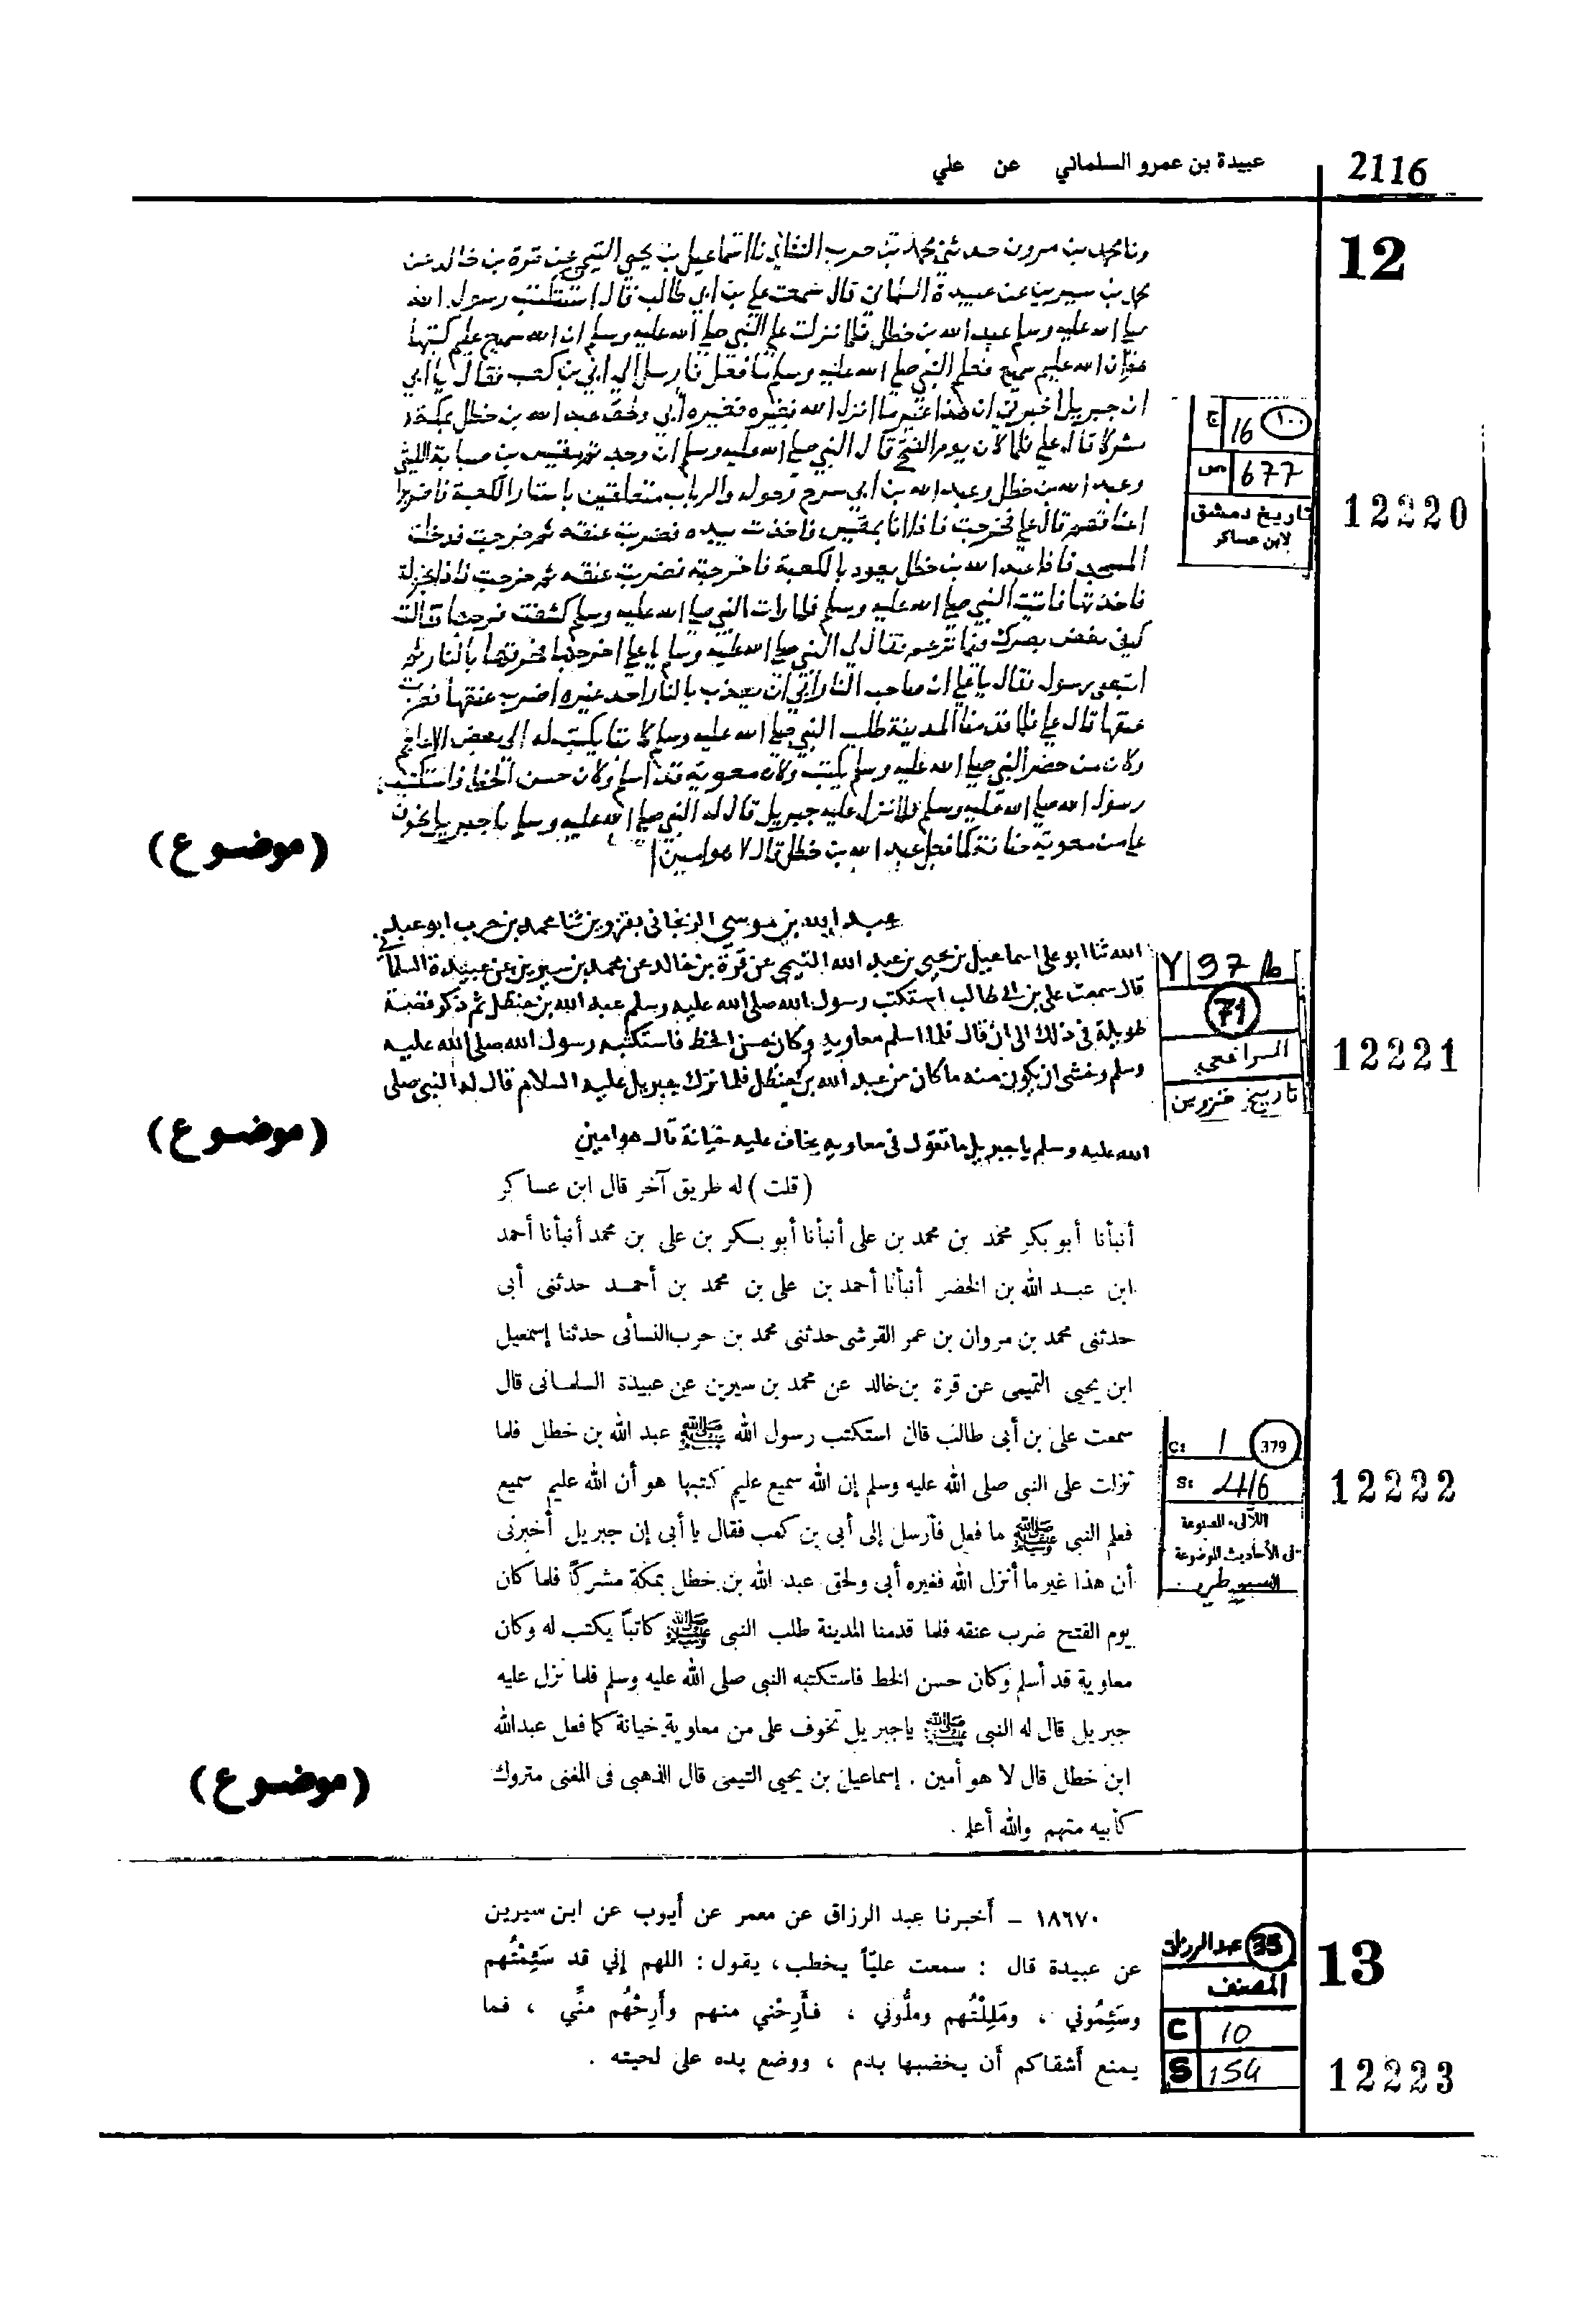 عبيدة بن عمرو السلماني عن علي
2116
12
ونا محمد بن مرون حدثني محمد بن حرب النشائي نا اسماعيل بن يحيى التيمي عن قرة بن خالد عن
محمد بن سيرين عن عبيدة السلماني قال سمعت علي بن ابي طالب قال استكتب رسول الله
صلى الله عليه وسلم عبد الله بن خطل فلما نزلت على النبي صلى الله عليه وسلم ان الله سميع عليم كتبها
ان الله عليم سميع فعلم النبي صلى الله عليه وسلم ما فعل فارسل الى ابي بن كعب فقال يا ابي
ان جبريل اخبرني ان هذا غير ما انزل الله فغيره ابي ولحق عبد الله بن خطل بمكة
مشركا قال علي فلما كان يوم الفتح قال النبي صلى الله عليه وسلم ان وجدتم مقيس بن صبابة الليثي
وعبد الله بن خطل وعبد الله بن ابي سرح متعلقين باستار الكعبة فاضربوا
اعناقهم قال علي فخرجت فاذا انا بمقيس فاخذت بيده فضربت عنقه ثم خرجت فدخلت
المسجد فاذا عبد الله بن خطل يعوذ بالكعبة فاخرجته فضربت عنقه ثم خرجت
فاخذتها فاتيت النبي صلى الله عليه وسلم فلما رات النبي صلى الله عليه وسلم كشفت فرجها قالت
فقال لي النبي صلى الله عليه وسلم يا علي اخرجها فحرقها بالنار ثم
اتبعني رسول فقال يا علي ان صاحب النار ابى ان يعذب بالنار احد غيره اضرب عنقها فضربت
عنقها قال علي فلما قدمنا المدينة طلب النبي صلى الله عليه وسلم كاتبا يكتب له الى بعض الاعاجم
وكان من حضر النبي صلى الله عليه وسلم يكتب وكان معوية قد اسلم وكان حسن الخط فاستكتبه
رسول الله صلى الله عليه وسلم فلما نزل عليه جبريل قال له النبي صلى الله عليه وسلم يا جبريل تخوف
علي من معوية خيانة كما فعل عبد الله بن خطل قال لا هو امين
(موضوع)
ج 16 ١٠٠
ص 677
تاريخ دمشق
لابن عساكر
12220
عبد الله بن موسى الزنجاني بقزوين ثنا محمد بن حرب ابو عبد
الله ثنا ابو علي اسماعيل بن يحيى بن عبد الله التيمي عن قرة بن خالد عن محمد بن سيرين عن عبيدة السلماني
قال سمعت علي بن ابي طالب استكتب رسول الله صلى الله عليه وسلم عبد الله بن حنظل ثم ذكر قصة
طويلة في ذلك الى ان قال فلما اسلم معاويه وكان حسن الخط فاستكتبه رسول الله صلى الله عليه
وسلم وخشى ان يكون منه ما كان من عبد الله بن حنظل فلما نزل جبريل عليه السلام قال له النبي صلى
الله عليه وسلم يا جبريل ما تقول في معاويه يخاف عليه خيانة قال هو امين
(موضوع)
Y 97 b
71
الرافعي
تاريخ قزوين
12221
(قلت) له طريق آخر قال ابن عساكر
أنبأنا أبو بكر محمد بن محمد بن على أنبأنا أبو بكر بن على بن محمد أنبأنا أحمد
ابن عبد الله بن الخضر أنبأنا أحمد بن على بن محمد بن أحمد حدثنى أبى
حدثنى محمد بن مروان بن عمر القرشى حدثنى محمد بن حرب النسائى حدثنا إسمعيل
ابن يحيى التميمى عن قرة بن خالد عن محمد بن سيرين عن عبيدة السلمانى قال
سمعت على بن أبى طالب قال استكتب رسول الله ﷺ عبد الله بن خطل فلما
نزلت على النبى صلى الله عليه وسلم إن الله سميع عليم كتبها هو أن الله عليم سميع
فعلم النبى ﷺ ما فعل فأرسل إلى أبى بن كعب فقال يا أبى إن جبريل أخبرنى
أن هذا غير ما أنزل الله فغيره أبى ولحق عبد الله بن خطل بمكة مشركاً فلما كان
يوم الفتح ضرب عنقه فلما قدمنا المدينة طلب النبى ﷺ كاتباً يكتب له وكان
معاوية قد أسلم وكان حسن الخط فاستكتبه النبى صلى الله عليه وسلم فلما نزل عليه
جبريل قال له النبى ﷺ ياجبريل تخوف على من معاوية خيانة كما فعل عبدالله
ابن خطل قال لا هو أمين . إسماعيل بن يحيى التيمى قال الذهبى فى المغنى متروك
كأبيه متهم والله أعلم .
(موضوع)
C: 1 379
S: 416
اللآلىء المصنوعة
فى الأحاديث الموضوعة
السيوطي
12222
١٨٦٧٠ – أخبرنا عبد الرزاق عن معمر عن أيوب عن ابن سيرين
عن عبيدة قال : سمعت عليّاً يخطب، يقول : اللهم إني قد سَئِمْتُهم
وسَئِمُوني ، ومَلِلْتُهم وملُّوني ، فأَرِحْني منهم وأَرِحْهُم منِّي ، فما
يمنع أشقاكم أن يخضبها بدم ، ووضع يده على لحيته .
35 عبد الرزاق
المصنف
C 10
S 154
13
12223